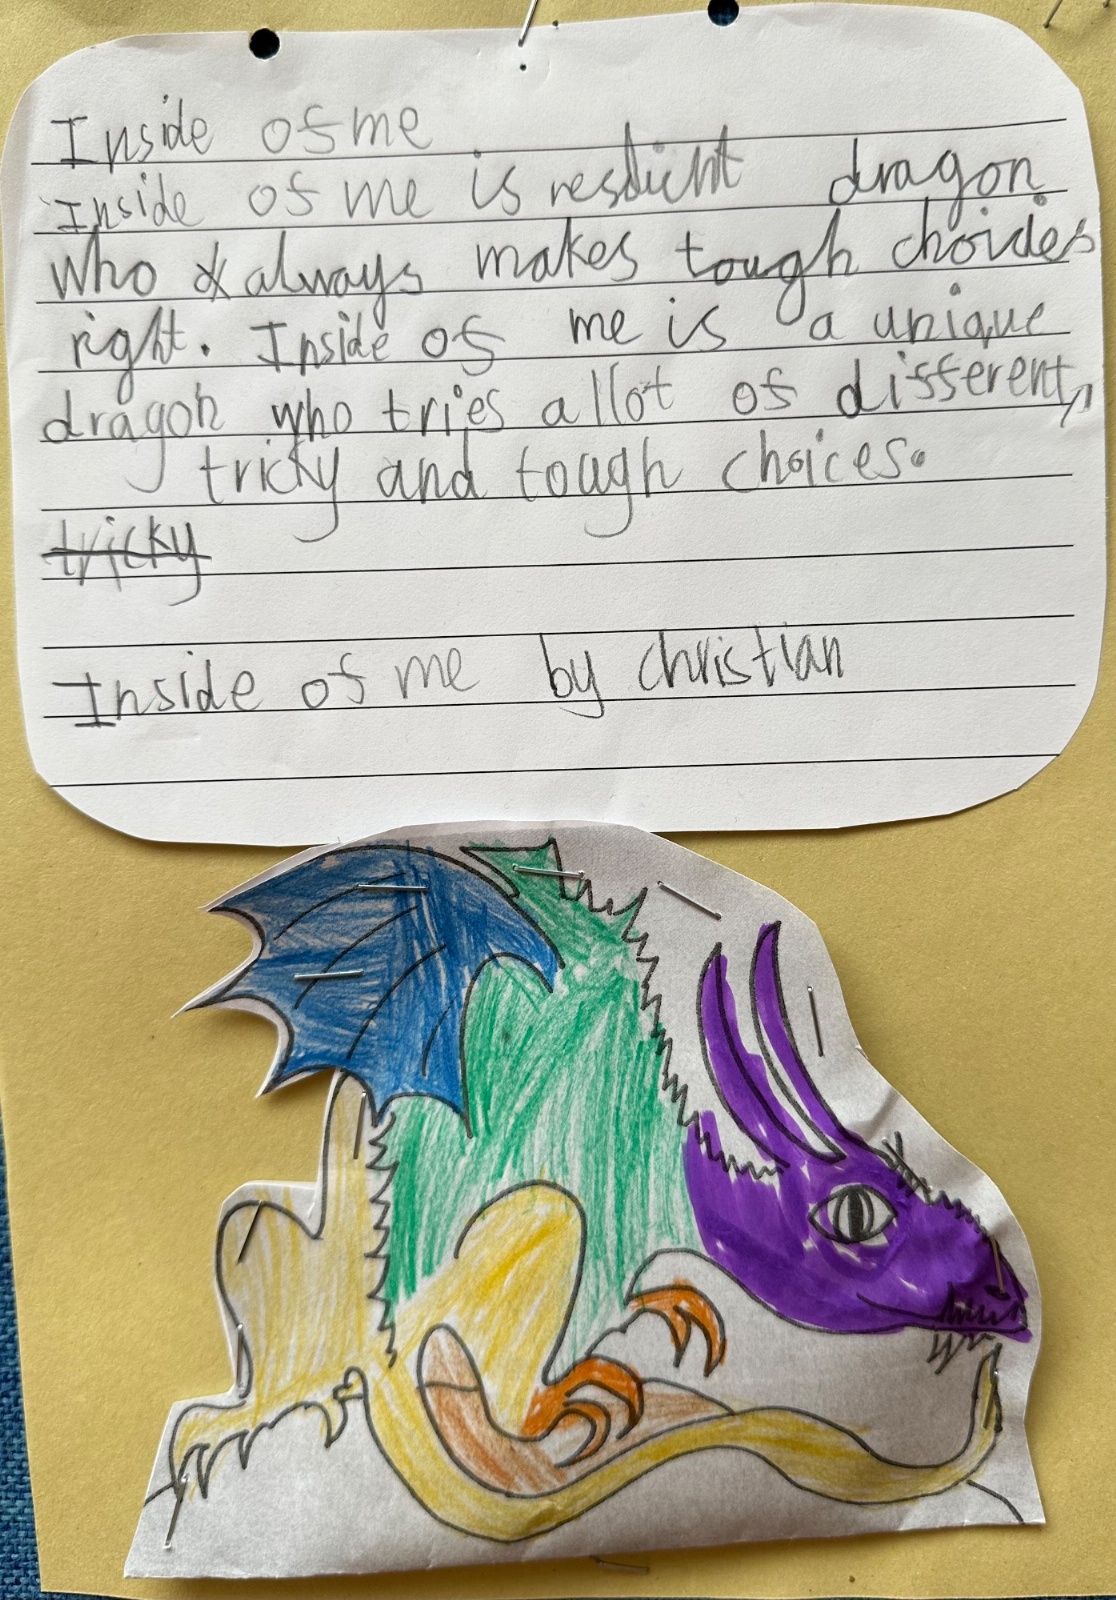 Inside of me
Inside of me is dragon
who always makes tough choides
right. Inside of me is a unique
dragon who tries allot of different,
tricky and tough choices.
tricky
Inside of me by christian